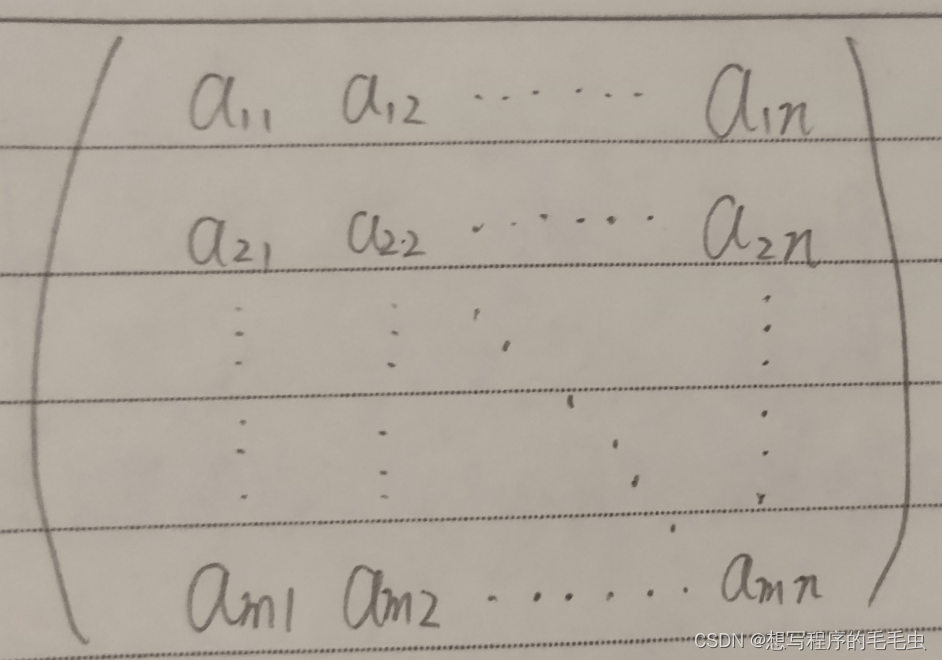 a11 a12 ······ a1n
a21 a22 ······ a2n
am1 am2 ······ amn
CSDN @想写程序的毛毛虫